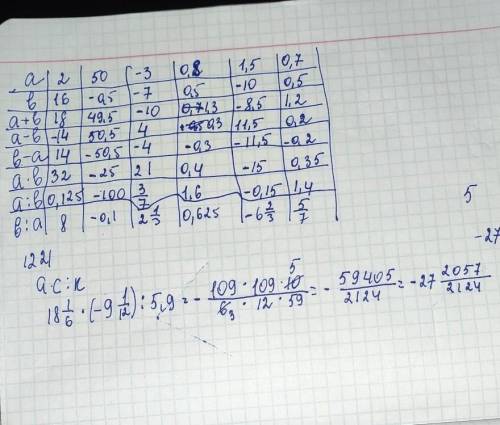 a | 2 | 50 | -3 | 0,8 | 1,5 | 0,7
в | 16 | -0,5 | -7 | 0,5 | -10 | 0,5
a+в | 18 | 49,5 | -10 | 1,3 | -8,5 | 1,2
a-в | -14 | 50,5 | 4 | 0,3 | 11,5 | 0,2
в-a | 14 | -50,5 | -4 | -0,3 | -11,5 | -0,2
a·в | 32 | -25 | 21 | 0,4 | -15 | 0,35
a:в | 0,125 | -100 | 3/7 | 1,6 | -0,15 | 1,4
в:a | 8 | -0,1 | 2 1/3 | 0,625 | -6 2/3 | 5/7
5
1221
-27
ac:к
18 1/6 · (-9 1/12) : 5,9 = - 109·109·10 5 / 6 3·12·59 = - 59405/2124 = -27 2057/2124